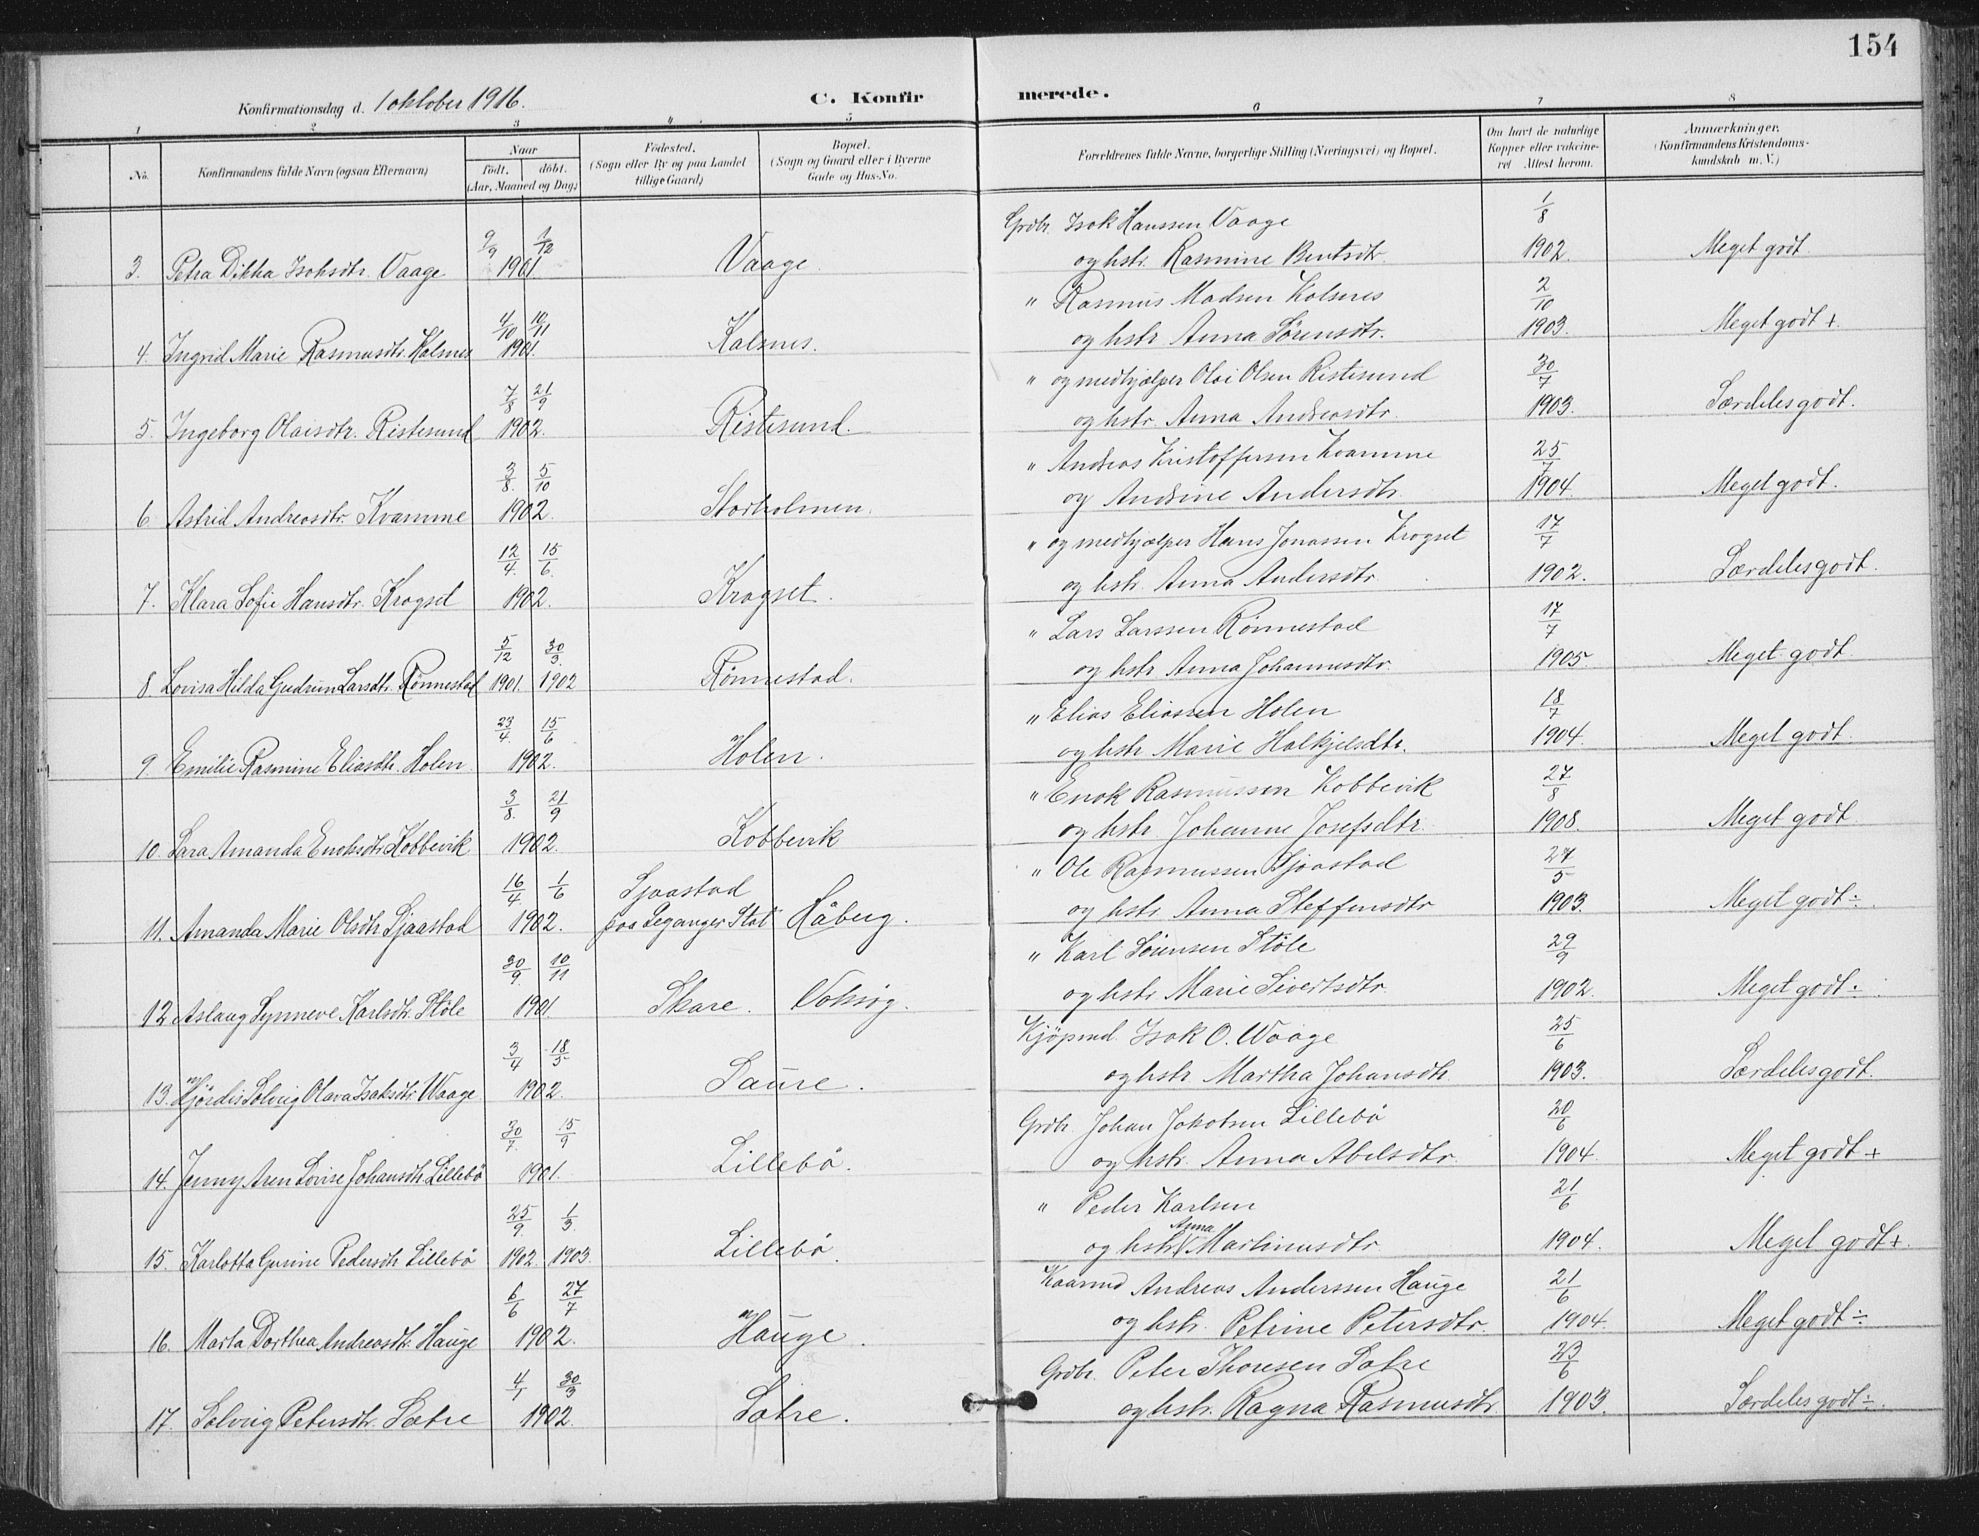 154
Konfirmationsdag d. 1 oktober 1916. C. Konfirmerede.
1 2 3 4 5 6 7 8
No. Konfirmandens fulde Navn (ogsaa Efternavn) Naar født. døbt. (Aar, Maaned og Dag) Fødested. (Sogn eller By og paa Landet tillige Gaard) Bopæl. (Sogn og Gaard eller i Byerne Gade og Hus-No. Forældrenes fulde Navne, borgerlige Stilling (Næringsvei) og Bopæl. Om havt de naturlige Kopper eller vakcineret Attest herom. Anmærkninger. (Konfirmandens Kristendomskundskab m. V.)
Grdbr. Isak Hanssen Vaage 1/8
3. Petra Dikka Isaksdtr. Vaage 9/9 1/12 1901. Vaage. og hstr. Rasmine Bentsdtr. 1902. Meget godt
" Rasmus Madsen Kalsnes 2/10
4. Ingrid Marie Rasmusdtr. Kalsnes 4/10 10/11 1901. Kalsnes. og hstr. Anna Sørensdtr. 1903. Meget godt +
" og medhjælper Olai Olsen Ristesund 30/7
5. Ingeborg Olaisdtr. Ristesund 7/8 21/9 1902. Ristesund. og hstr. Anna Andreasdtr. 1903. Særdeles godt.
" Andreas Kristoffersen Kvamme 25/7
6. Astrid Andreasdtr. Kvamme 3/8. 5/10 1902. Storholmen. og Andrine Andersdtr. 1904. Meget godt.
" og medhjælper Hans Jonassen Krogset 17/7
7. Klara Sofie Hansdtr. Krogset 12/4. 15/6. 1902. Krogset. og hstr. Anna Andersdtr 1902. Særdeles godt.
" Lars Larssen Rønnestad 17/7
8 Lovisa Hilda Gudrun Larsdtr. Rønnestad 5/12 30/3. 1901. 1902 Rønnestad. og hstr. Anna Johannesdtr. 1905. Meget godt
" Elias Eliassen Holen 18/7
9. Emilie Rasmine Eliasdtr. Holen. 23/4. 15/6 1902. Holen. og hstr. Marie Halkjelsdtr. 1904. Meget godt.
" Enok Rasmussen Kobbevik 27/8
10. Lara Amanda Enoksdtr Kobbevik 3/8. 21/9 1902. Kobbevik og hstr. Johanne Josefsdtr. 1908. Meget godt
" Ole Rasmussen Sjaastad 27/5
11. Amanda Marie Olsdtr. Sjaastad 16/4. 1/6 1902. Sjaastad paa Leganger Stat Håberg. og hstr. Anna Steffensdtr 1903. Meget godt ÷.
" Karl Sørensen Støle 29/9
12 Aslaug Synneve Karlsdtr. Støle 30/9. 10/11 1901. Skare. Voksøg. og hstr. Marie Sivertsdtr 1902. Meget godt ÷
Kjøpmd. Isak O. Waage 25/6
13. Hjørdis Solvig Olava Isaksdtr Waage 3/4 18/5 1902. Saure. og hstr. Martha Johansdtr. 1903. Særdeles godt.
Grdbr. Johan Jakobsen Lillebø 20/6
14. Jenny Aren Lovise Johansdtr. Lillebø 30/7. 15/9 1901. Lillebø. og hstr. Anna Abelsdtr 1904. Meget godt +
" Peder Karlsen 21/6
15. Karlotta Gurine Pedersdtr Lillebø 25/9. 1/3. 1902. 1903. Lillebø. og hstr. Anna Martinusdtr 1904. Meget godt +.
Kaarmd Andreas Anderssen Hauge 21/6
16. Marta Dorthea Andreasdtr. Hauge 6/6 27/7 1902. Hauge. og hstr. Petrine Petersdtr. 1904. Meget godt ÷
Grdbr. Peter Thoresen Sætre 23/6
17. Solvig Petersdtr. Sætre 4/1 30/3 1902. Sætre. og hstr. Ragna Rasmusdtr. 1903. Særdeles godt ÷.